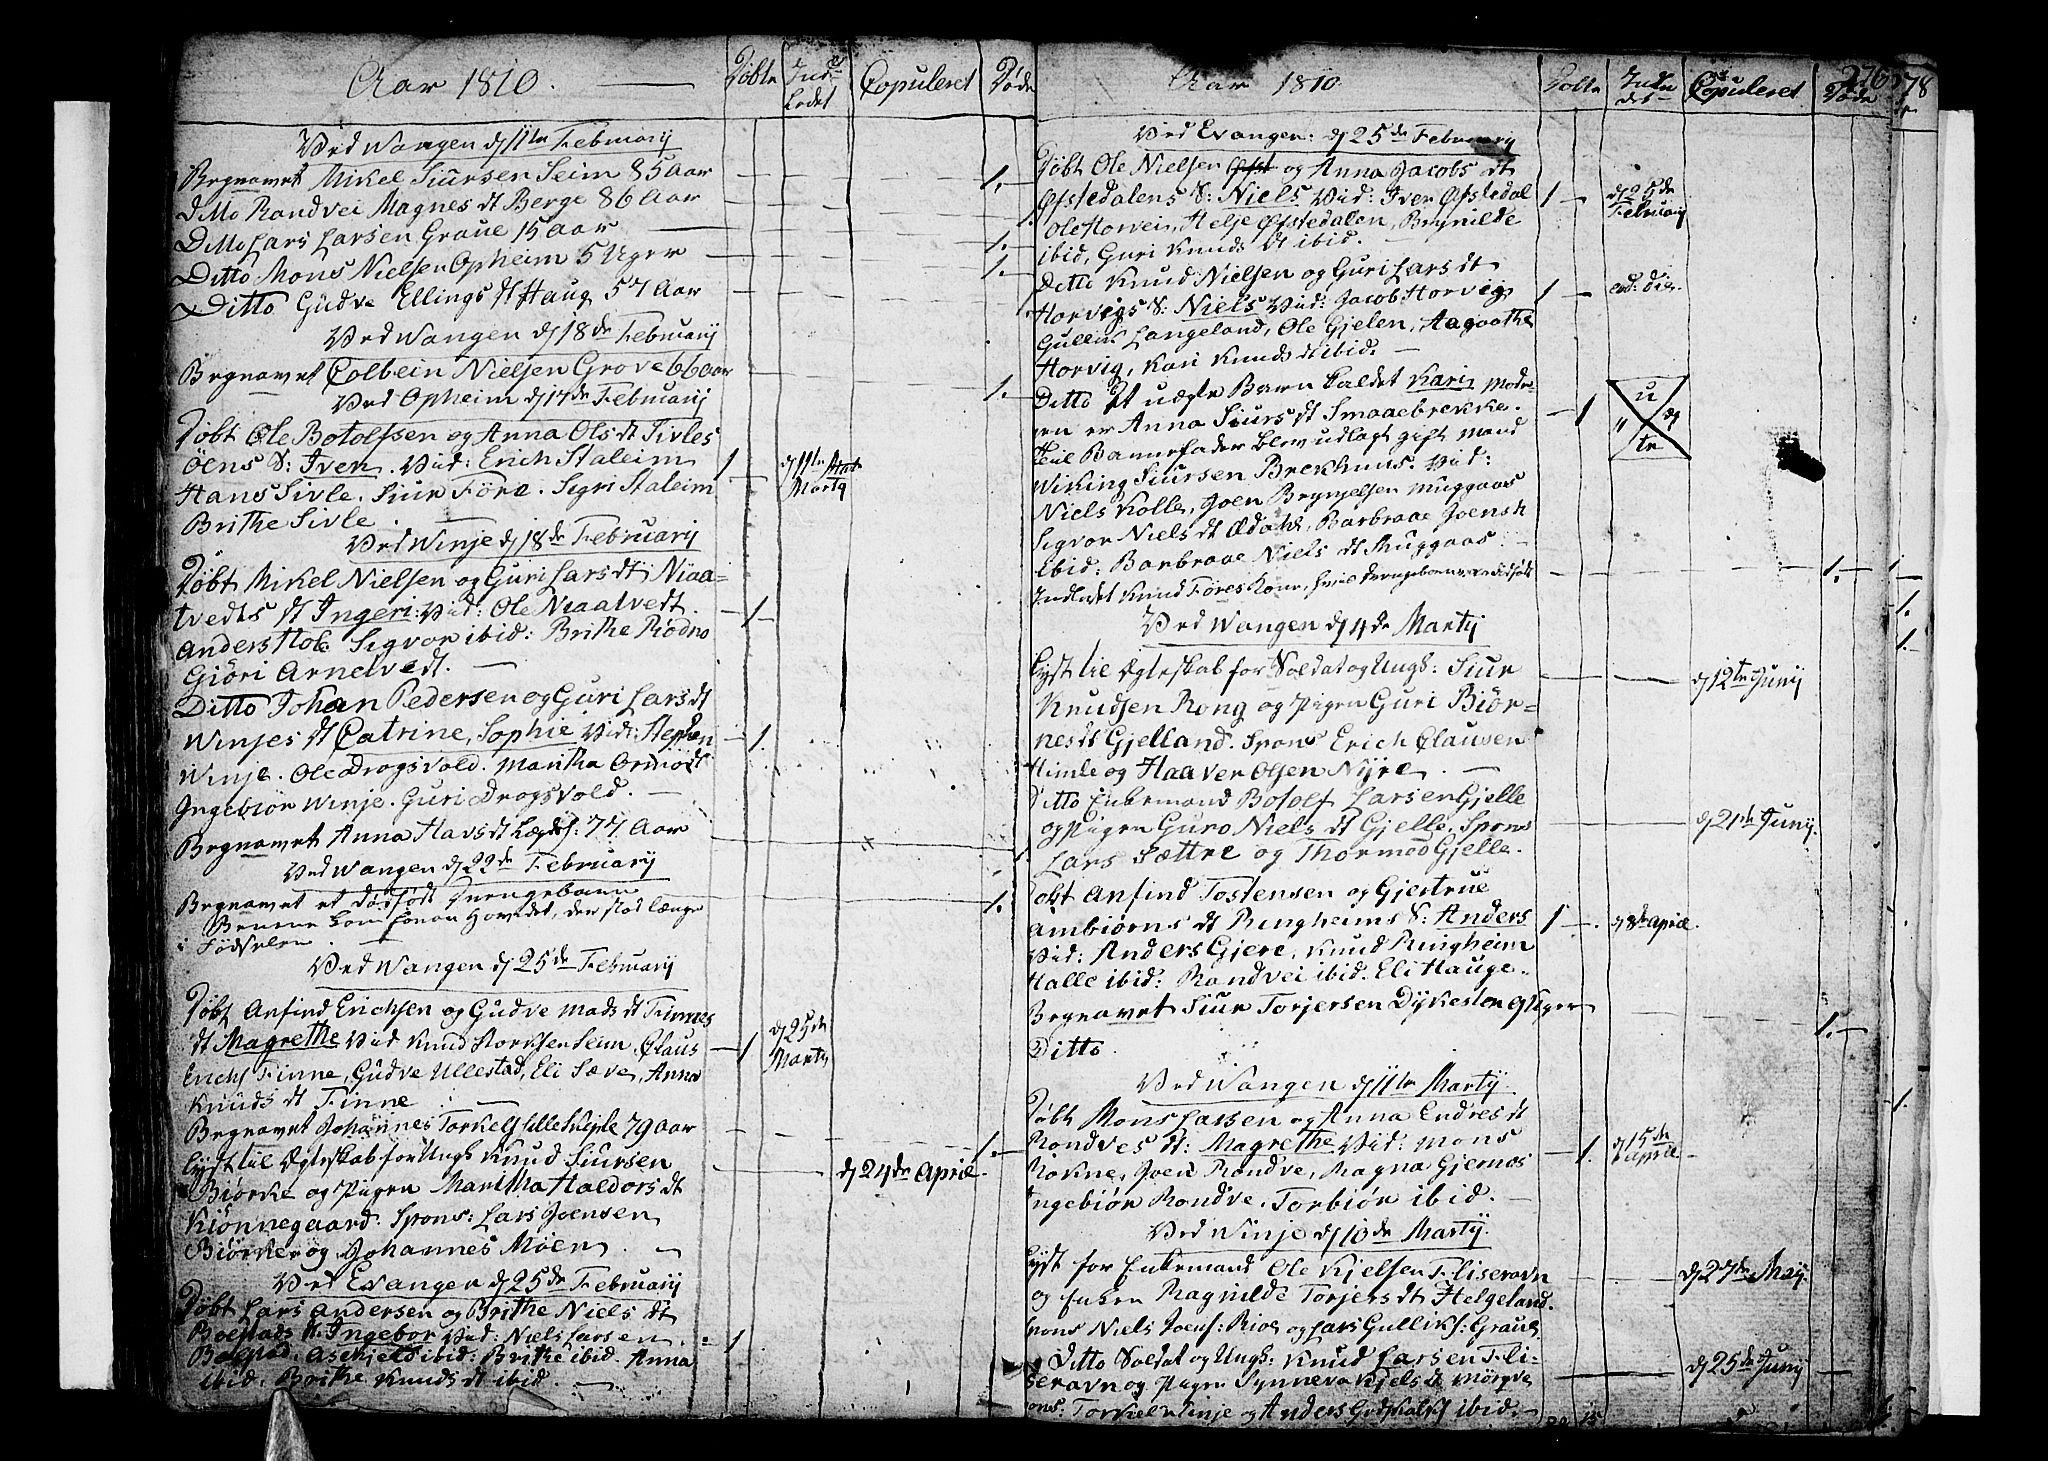 Aar 1810.
Døbte
Indledet
Copuleret
Døde
Ved Wangen d 11te Februarij
Begravet Mikel Siursen Seim 85 Aar
1.
ditto Randvei Magnes dt Berge 86 Aar
1.
Ditto Lars Larsen Graue 15 Aar
1.
Ditto Mons Nielsen Opheim 5 Uger
1.
Ditto Gudve Ellings dt Haug 57 Aar
1.
Ved Wangen d 18de Februarij
Begravet Colbein Nielsen Grove 66 Aar
1.
Ved Opheim d 17de Februarij
Døbt Ole Botolfsen og Anna Ols dt Sivles
Øens S: Iven. Vid: Erich Staleim
1
d 11te Martij
Hans Sivle. Siur Före. Sigri Staleim
Brithe Sivle.
Ved Winje d 18de Februarij
Døbt Mikel Nielsen og Guri Lars dt Niaa-
tvedts dt Ingeri: Vid: Ole Niaatvedt.
1
Anders Hole Sigvor ibid: Brithe Rödno
Giöri Arnetvedt.
Ditto Johan Pedersen og Guri Lars dt
Winjes dt Catrine, Sophie Vid: Stephen
1.
Winje. Ole Drogsvold. Martha Ormodt
Ingebiör Winje. Guri Drogsvold.
Begravet Anna Havs dt Lægds: 77 Aar
1.
Ved Wangen d 22de Februarij
Begravet et dödfödt Drengebarn
1.
Benene kom foran Hovedet, der stod længe
i Födselen.
Ved Wangen d 25de Februarij
Døbt Anfind Erichsen og Gudve Mads dt Finnes
dt Magrethe Vid Knud Seim. Claus
1
d 25de Martij
Erichs Finne, Gudve Ullestad, Eli Sæve, Anna
Knuds dt Finne
Begravet Johannes Torkels Lille 79 Aar
1.
Lyst til Ægteskab for Ungk Knud Siursen
d 24de April
Biørke og Pigen Martha Haldors dt
Kiönnegaard. Spons: Lars Joensen
Biørke og Johannes Møen.
Ved Evangen d 25de Februarij
Døbt Lars Andersen og Brithe Niels dt
Bolstads dt Ingebor Vid: Niels Larsen
1
Bolstad. Aschjeld ibid: Brithe ibid Anna
ibid. Brithe Knuds dt ibid.
Aar 1810.
Døbte
Indledet
Copuleret
Døde
276
78
Ved Evangen: d 25de Februarij
Døbt Ole Nielsen og Anna Jacobs dt
Øfstedalens S: Niels Vid: Iver Øfstedal
1
d 25de Februarij
Ole Horvei, Helje Øfstedalen, Brynilde
ibid, Guri Knuds dt ibid.
Ditto Knud Nielsen og Guri Lars dt
Horvigs S: Niels Vid: Jacob Horvig
1
eod: die.
Gullik Langeland, Ole Gjelen, Aagaathe
Horvig, Kari Knuds dt ibid.
Ditto Et uægte Barn kaldet Kari Mode-
ren er Anna Siurs dt Smaabrekke.
1
Til Barnefader blev udlagt gift Mand
Wiking Siursen Brekhuus. Vid:
Niels Kolle, Joen Brynjelsen Muggaas
Sigvor Niels dt Ædahl, Barbraae Joens dt
Ibid: Barbraae Niels dt Muggaas
Indledet Knud Föres Kone,
1.
Ved Wangen d 4de Martij
Lyst til Ægteskab for Soldat og Ungk: Siur
d 12te Junij
Knudsen Rong og Pigen Guri Biör-
nes dt Gjelland. Spons Erich Clausen
Himle og Haaver Olsen Nyre
Ditto Enkemand Botolf Larsen Gjelle
og Pigen Guro Niels dt Gjelle. Spons
d 21de Junij.
Lars Sættre og Thormod Gjelle.
Døbt Anfind Tostensen og Gjertrue
Ambiörns dt Ringheims S: Anders
1
d 8de April.
Vid: Anders Gjere, Knud Ringheim
Halle ibid: Randvei ibid. Eli Hauge.
Begravet Siur Torjersen Dykesten 9 Uger
1.
Ditto
Ved Wangen d 11te Martij.
Døbt Mons Larsen og Anna Endres dt
Rondves dt: Magrethe Vid: Mons
1.
d 15de April
Rokne, Joen Rondve, Magna Gjernes
Ingebiör Rondve, Torbiör ibid.
Ved Winje d 10de Martij.
Lyst for Enkemand Ole Kjelsen Fliseravn
d 27de Maij.
og Enken Ragnilde Torjers dt Helgeland.
Spons Niels Joens: Rios og Lars Gulliks: Graue
Ditto Soldat og Ungk: Knud Larsen Fli-
d 25de Junij
seravn og Pigen Synneva Kjels dt Mörqve
Spons: Torkel Winje og Anders Godskalks ibid.